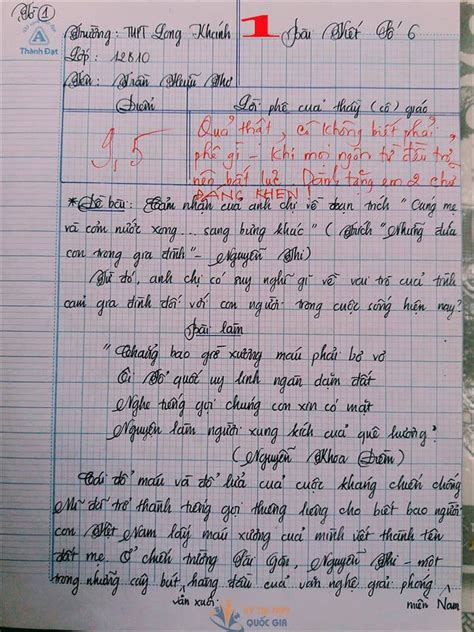 Tờ ①
Thành Đạt
Trường: THPT Long Khánh 1 Bài Viết Số 6
Lớp: 12B10
Tên: Trần Huỳnh Như
Điểm Lời phê của thầy (cô) giáo
9,5
Quả thật, cô không biết phải
phê gì - khi mọi ngôn từ đều trở
nên bất lực. Dành tặng em 2 chữ
ĐÁNG KHEN!
*Đề bài: Cảm nhận của anh chị về đoạn trích "Cúng mẹ
và cơm nước xong... sang bưng khác" (Trích "Những đứa
con trong gia đình" - Nguyễn Thi)
Từ đó, anh chị có suy nghĩ gì về vai trò của tình
cảm gia đình đối với con người trong cuộc sống hiện nay?
Bài làm
"Chẳng bao giờ xương máu phải bơ vơ
Ôi Tổ quốc uy linh ngàn dặm đất
Nghe tiếng gọi chung con xin có mặt
Nguyện làm người xung kích của quê hương"
(Nguyễn Khoa Điềm)
Cái đổ máu và đổ lửa của cuộc kháng chiến chống
Mĩ đã trở thành tiếng gọi thương liêng cho biết bao người
con Việt Nam lấy máu xương của mình viết thành tên
đất mẹ. Ở chiến trường Sài Gòn, Nguyễn Thi - một
trong những cây bút hàng đầu của văn nghệ giải phóng
văn xuôi miền Nam
KỲ THI THPT
QUỐC GIA